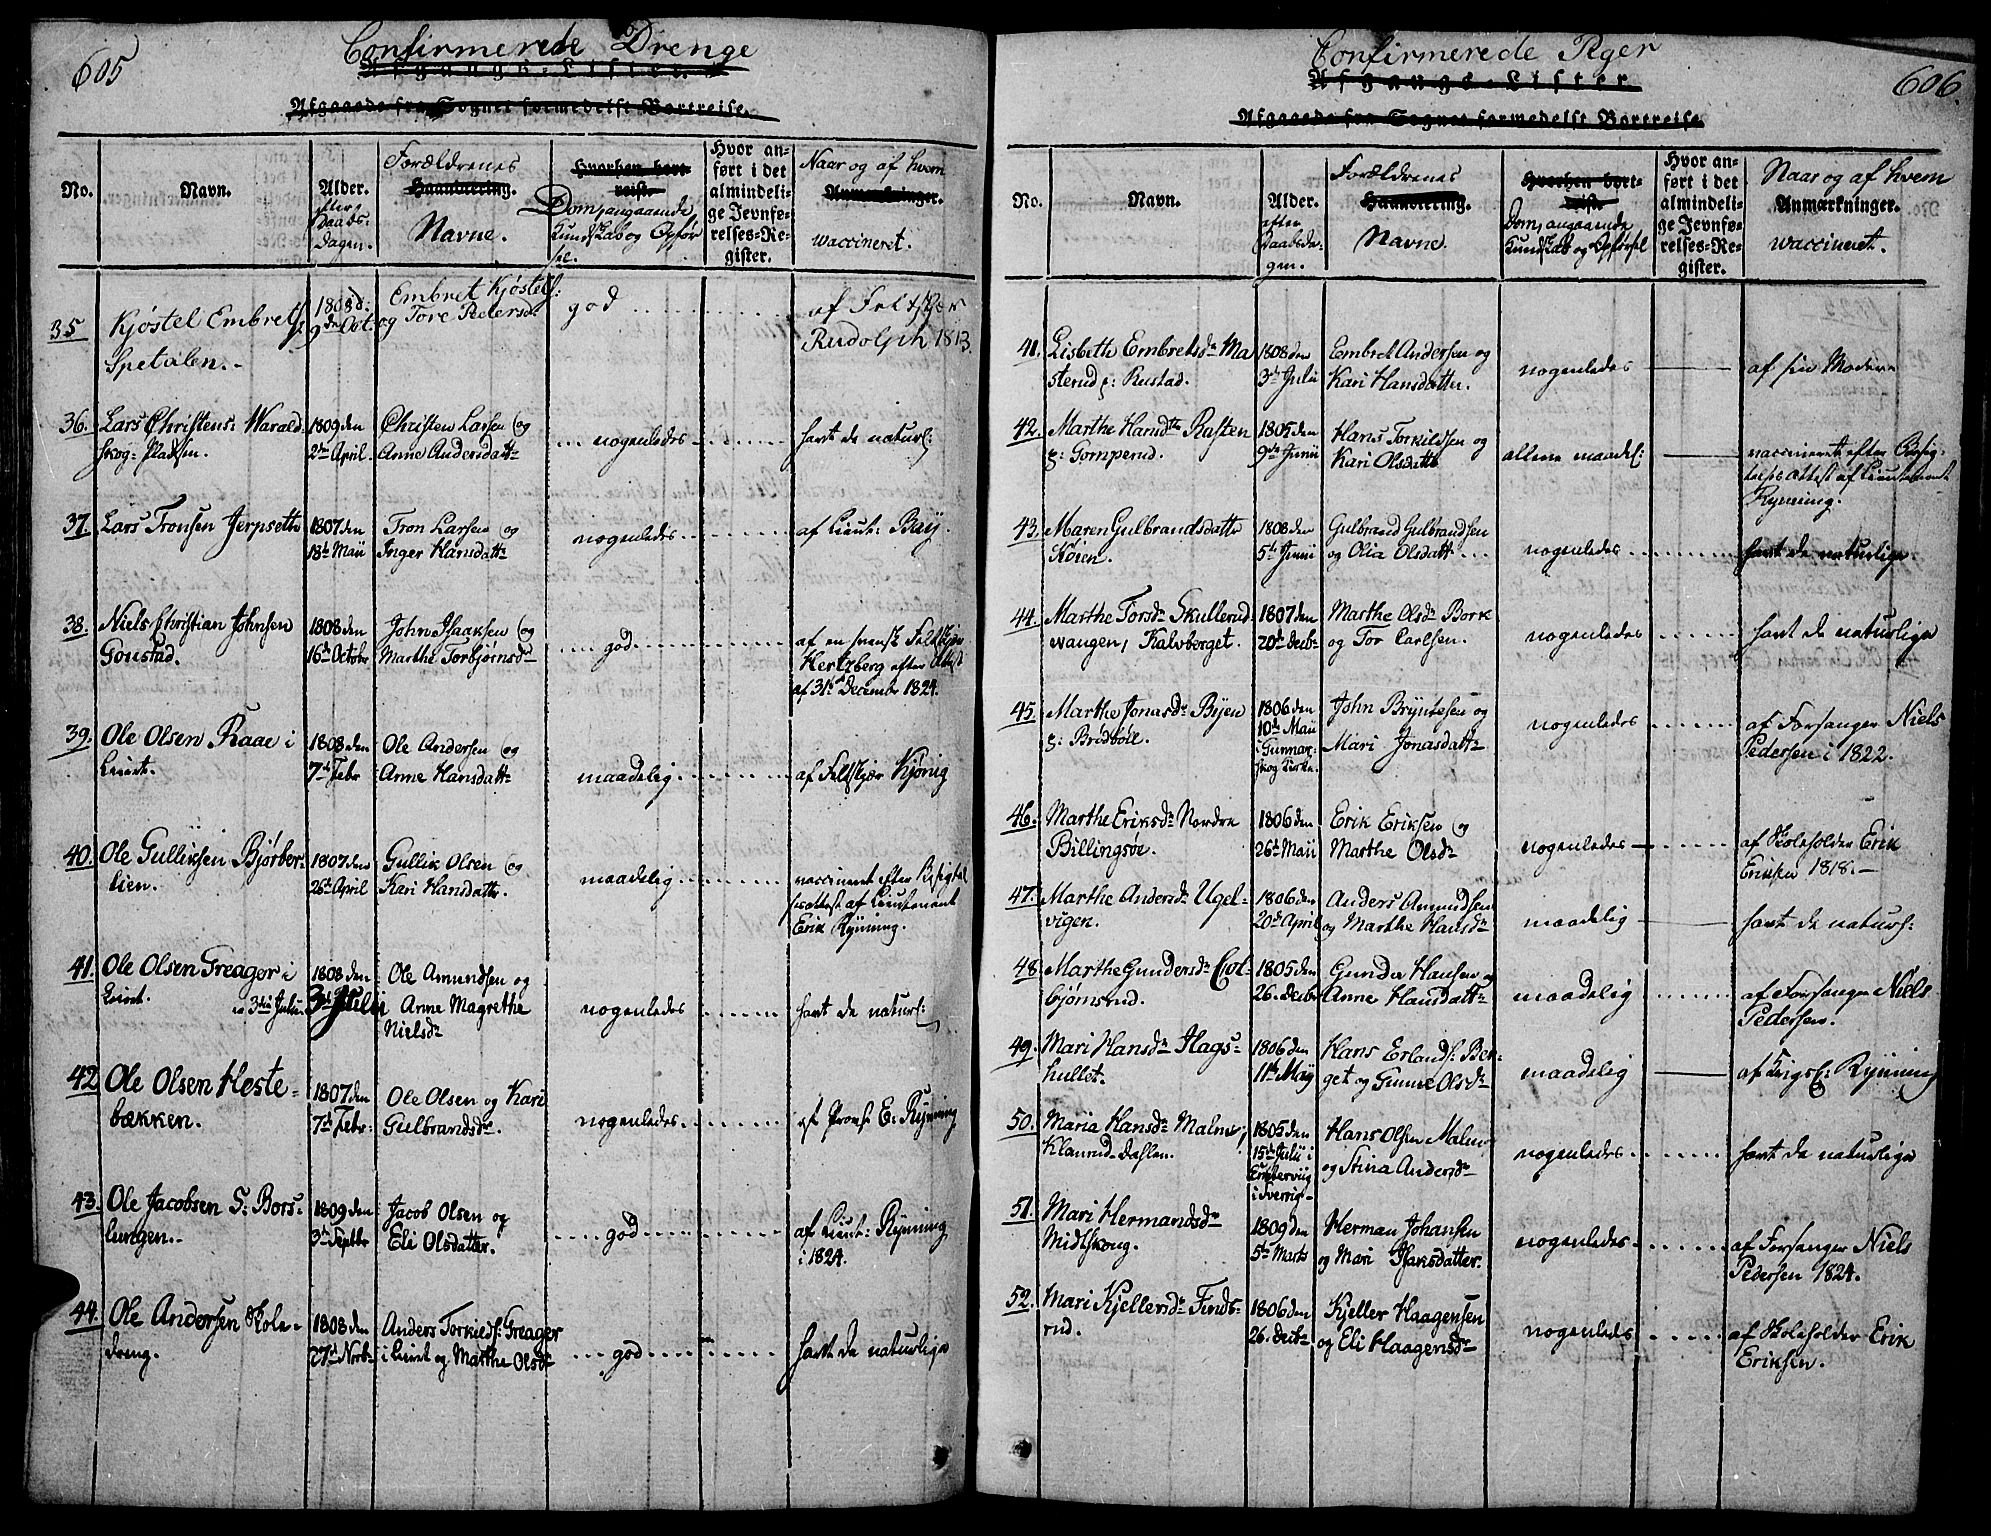 605
Confirmerede Drenge
Afgangs-Lister.
Afgaaede fra Sognet formedelst Bortreise.
No.
Navn.
Alder.
efter
Daabs-
dagen.
Forældrenes
Haandtering.
Navne.
Hvorhen bort-
reist.
Dom, angaaende
Kundskab og Opfør
sel.
Hvor an-
ført i det
almindeli-
ge Jevnfø-
relses-Re-
gister.
Naar og af hvem
Anmærkninger.
vaccineret.
35
Kjøstel Embrets:
Spetalen.
1808 d:
9de Oct.
Embret Kjøstels:
og Tore Pedersd:
god
af Feltskjær
Rudolph 1813.
36.
Lars Christens: Warald
skog: Pladsen.
1809 den
2den April.
Christen Larsen og
Anne Andersdatt:
nogenledes
havt de naturl:
37.
Lars Tronsen Jerpsett
1807 den
18de Maii
Tron Larsen og
Inger Hansdattr
nogenledes
af Lieut: Bay.
38.
Niels Christian Johnsen
Goustad.
1808 den
16de Octobr
John Isaaksen og
Marthe Torbjørnsdr
god
af en svensk Feldskjær
Hertzberg efter Attest
af 31te December 1824.
39.
Ole Olsen Raae i
Leirt.
1808 den
7de Febr
Ole Andersen og
Anne Hansdattr
maadelig
af Feldskjær Kjønig
40.
Ole Gulliksen Bjørber-
lien.
1807 den
26de April
Gullik Olsen og
Kari Hansdattr.
maadelig
vaccineret efter Besigtel
sesattest af Lieutenant
Erik Ryning.
41.
Ole Olsen Greager i
Leirt.
3die Julii
1808 den
3die Julii
Ole Amundsen og
Anne Magrethe
Nielsdr
nogenledes
havt de naturl:
42
Ole Olsen Heste-
bækken.
1807 den
7de Febr:
Ole Olsen og Kari
Gulbrandsdr.
nogenledes
af Prem: E: Ryning
43.
Ole Jacobsen S: Bors-
lungen.
1809 den
3de Septbr
Jacob Olsen og
Eli Olsdatter.
god
af Lieut: Ryning
i 1824.
44.
Ole Andersen Skole-
dreng.
1808 den
27de Novbr
Anders Torkelds: Greager
i Leirt og Marthe Olsdr
god
havt de naturlige
606.
Confirmerede Piger
Afgangs-Lister.
Afgaaede fra Sognet formedelst Bortreise.
No.
Navn.
Alder.
efter
Daabsda-
gen.
Forældrenes
Haandtering.
Navne.
Hvorhen bort-
reist.
Dom, angaaende
Kundskab og Opførsel
Hvor an-
ført i det
almindeli-
ge Jevnfø-
relses-Re-
gister.
Naar og af hvem
Anmærkninger.
vaccineret.
41.
Lisbeth Embretsdr Ma
sterud p: Rustad.
1808 den
3de Julii
Embret Andersen og
Kari Hansdatter.
nogenledes
af sin Moder
42.
Marthe Hansdtr Rasten
p: Gomperud.
1805 den
9de Junii
Hans Torkildsen og
Kari Olsdattr
allene maadel:
vaccineret efter Besig-
telses Attest af Lieutenant
Ryning.
43.
Maren Gulbrandsdattr
Køien.
1808 den
5te Junii
Gulbrand Gulbrandsen
og Olia Olsdatt
nogenledes
havt de naturlige.
44.
Marthe Torsdr Skullerud
vangen, Kalvberget.
1807 den
20de decbr
Marthe Olsdr Bork
og Tor Carlsen.
nogenledes
havt de naturlige
45.
Marthe Jonasdr Byen
p: Brødbøl.
1806 den
10de Maii
i Gunnar-
skog Kirke.
John Bryntesen og
Mari Jonasdattr
nogenledes
af Forsanger Niels
Pedersen i 1822.
46.
Marthe Eriksdr Nordre
Billingsøe.
1806 den
26de Maii
Erik Eriksen og
Marthe Olsdr
nogenledes
af Skoleholder Erik
Eriksen 1818.
47.
Marthe Andersdr Ugel-
vigen.
1806 den
20de April
Anders Amundsen
og Marthe Hansdr
maadelig
havt de naturl:
48.
Marthe Gundersdr Col-
bjømsrud.
1805 den
26. decbr
Gunder Hansen og
Anne Hansdattr
maadelig
af Forsanger Niels
Pedersen.
49.
Mari Hansdr Flags-
hullet.
1806 den
11te May
Hans Erlands: Ber-
get og Gunne Olsdr
maadelig
af Ryning
50.
Maria Hansdr Malmer,
Klanrud-Dahlen.
1805 den
15de Julii i
i Sverrig
Hans Olsen Malmer
og Stina Andersdr
nogenledes
havt de naturlige
51.
Mari Hermandsdr
Midtskoug.
1809 den
5te Marts
Herman Johansen
og Mari Isaksdatter.
nogenledes
af Forsanger Niels
Pedersen 1824.
52.
Mari Kjellersdr Finds-
rud.
1806 den
26. decbr
Kjeller Haagensen
og Eli Haagensdr
nogenledes
af Skoleholder Erik
Eriksen.